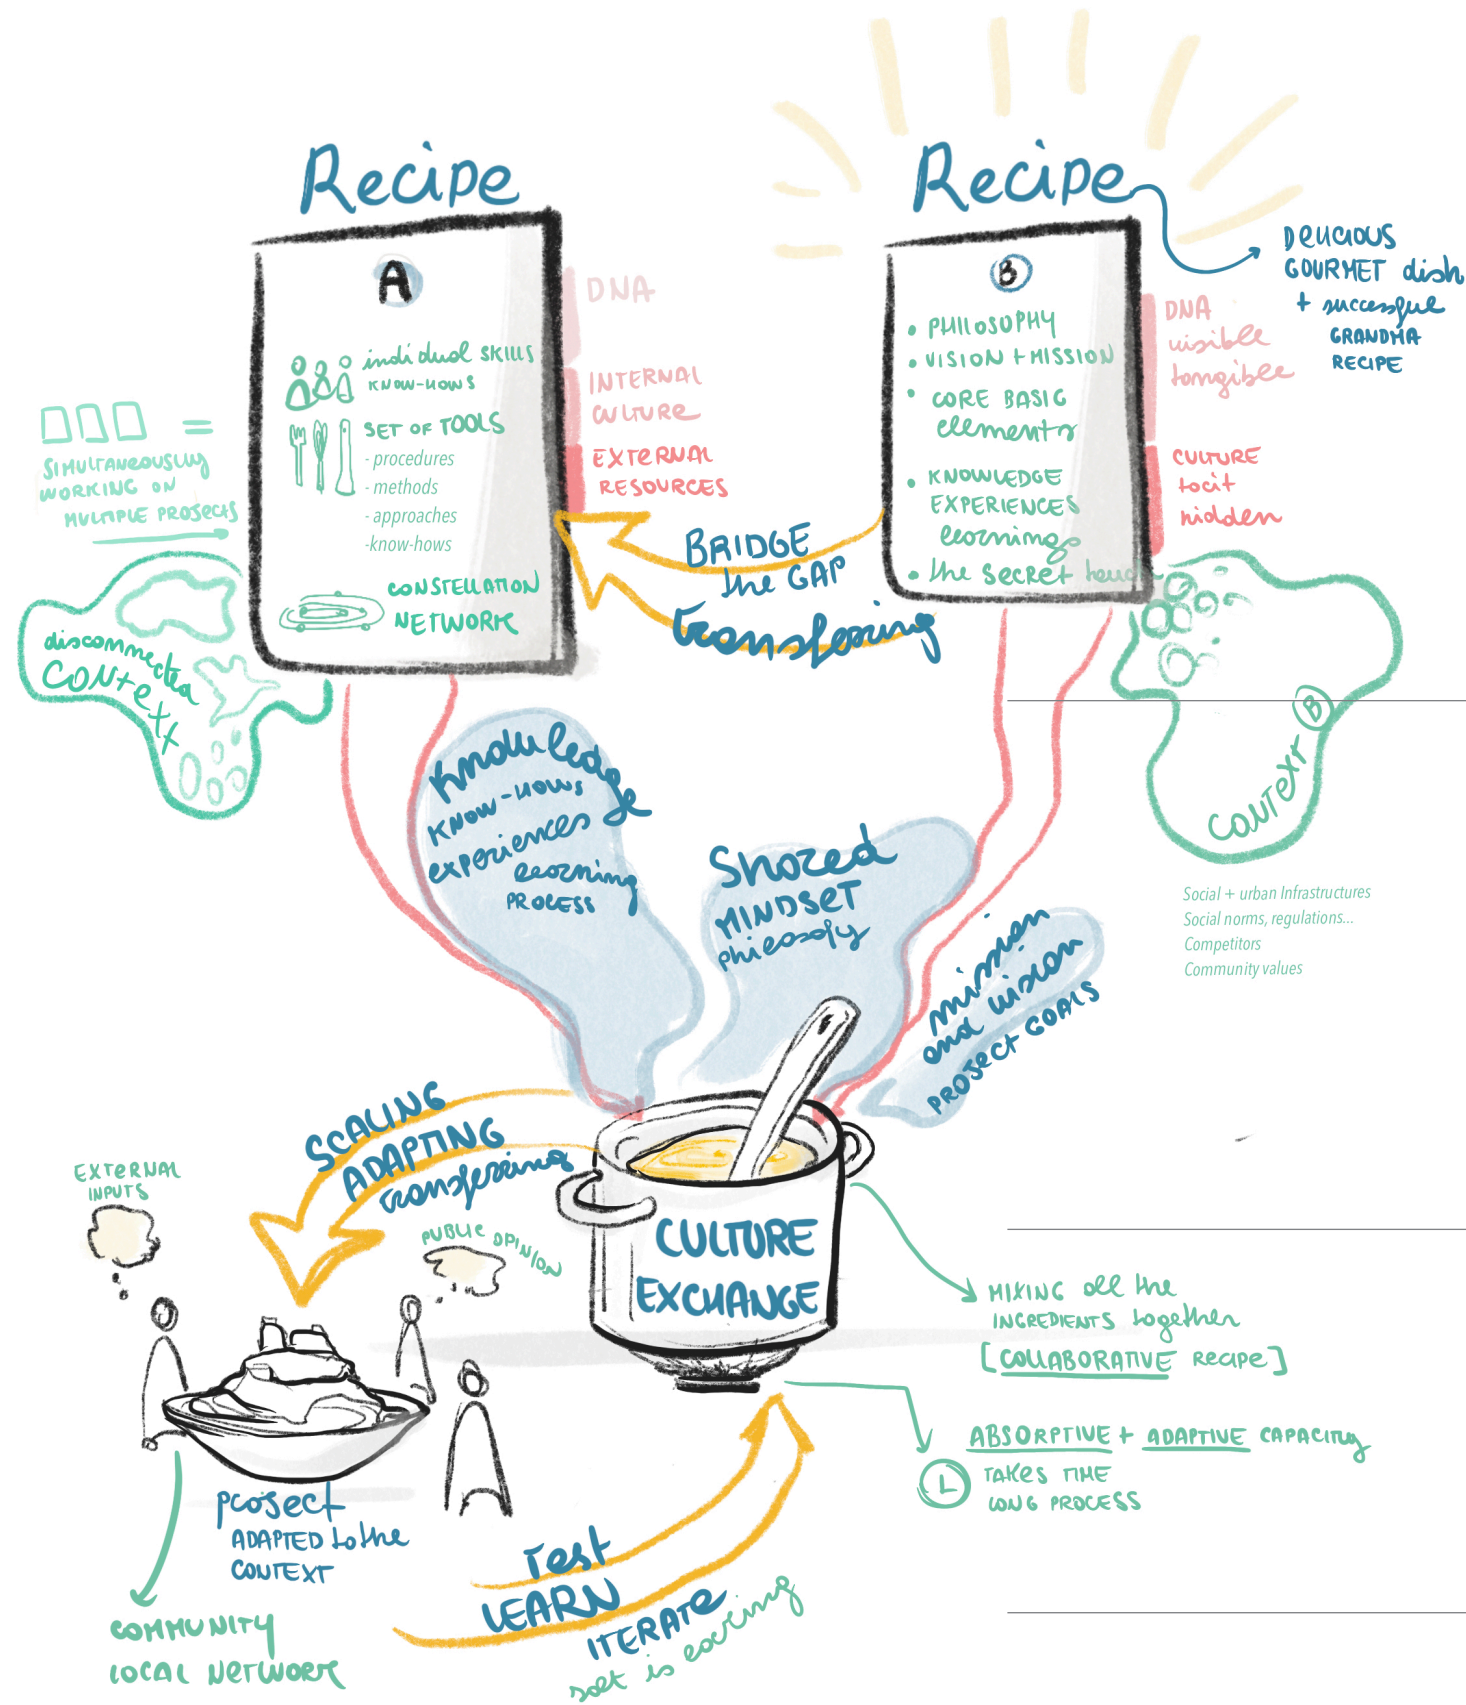 Recipe
A
individual SKILLS
KNOW-HOWS
SET OF TOOLS
- procedures
- methods
- approaches
-know-hows
CONSTELLATION
NETWORK
DNA
INTERNAL
CULTURE
EXTERNAL
RESOURCES
=
SIMULTANEOUSLY
WORKING ON
MULTIPLE PROJECTS
disconnected
CONTEXT
Recipe
B
• PHILOSOPHY
• VISION + MISSION
• CORE BASIC
elements
• KNOWLEDGE
EXPERIENCES
learnings
• the SECRET touch
DELICIOUS
GOURMET dish
+ successful
GRANDMA
RECIPE
DNA
visible
tangible
CULTURE
tacit
hidden
BRIDGE
the GAP
transferring
CONTEXT B
Social + urban Infrastructures
Social norms, regulations...
Competitors
Community values
Knowledge
KNOW-HOWS
experiences
learning
PROCESS
Shared
MINDSET
philosofy
mission
and vision
PROJECT GOALS
SCALING
ADAPTING
transferring
EXTERNAL
INPUTS
PUBLIC OPINION
CULTURE
EXCHANGE
MIXING all the
INGREDIENTS together
[COLLABORATIVE RECIPE]
ABSORPTIVE + ADAPTIVE CAPACITY
TAKES TIME
LONG PROCESS
project
ADAPTED to the
CONTEXT
COMMUNITY
LOCAL NETWORK
Test
LEARN
ITERATE